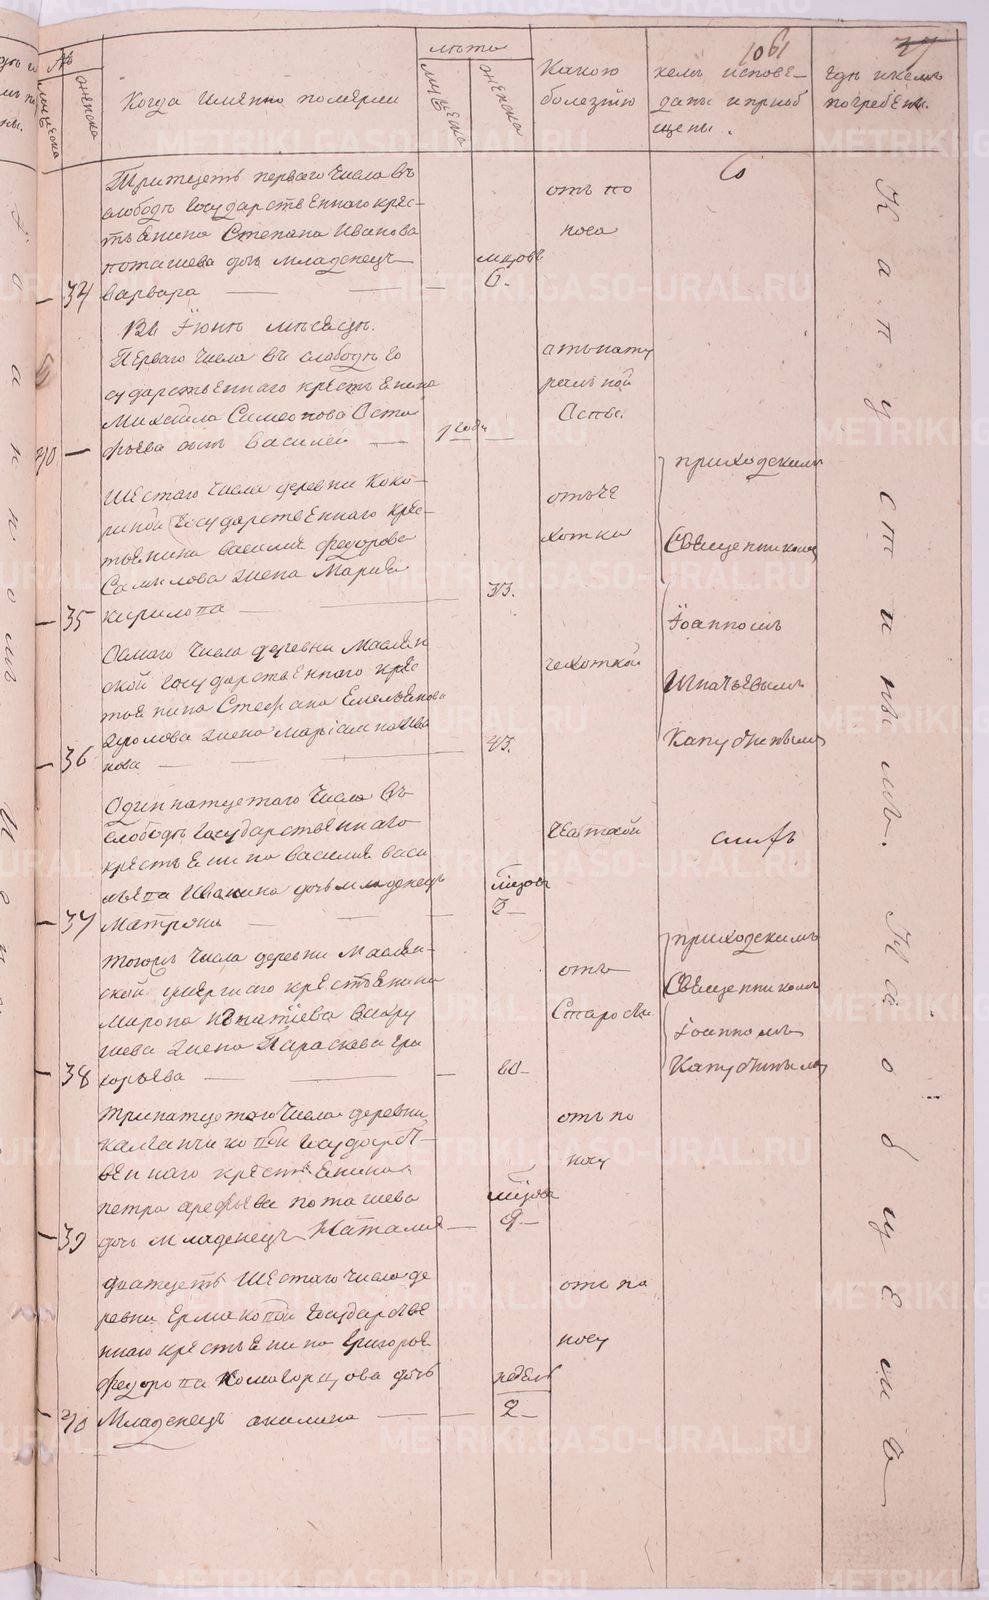 1061
37
№
мужеска
женска
Когда имянно померли
лѣта
мужеска
женска
Какою
болезнію
кемъ исповѣ-
даны и приоб
щены.
гдѣ и кемъ
погребены.
Тритцеть перваго числа въ
слободѣ государственнаго крес-
тьянина Степана Иванова
поташева дочь младенецъ
34 варвара
мцовъ
6.
отъ по
носа
Въ Іюнѣ мѣсяцѣ.
Перваго числа въ слободѣ го
сударственнаго крестьянина
Михаила Симеонова Оста
фьева сынъ василей
1 годъ
отъ нату
ральной
Оспы.
Шестаго числа деревни Коко-
риной государственнаго крес-
тьянина василия федорова
Самылова жена Мария
35 кирилова
33.
отъ че
хотки
приходскимъ
Священникомъ
Іоанномъ
Игнатьевымъ
Капустинымъ
Осмаго числа деревни Маслян
ской государственнаго крес
тьянина Стефана Емельянова
жена Маріамна Ива
36 нова
43.
чехоткой
Одиннатцетаго числа въ
слободѣ государственнаго
крестьянина василия васи
льева Ивакина дочь младенецъ
37 Матрона
мцовъ
3
симъ
тогожъ числа деревни Маслян-
ской умершаго крестьянина
Мирона игнатіева вакру
шева жена Параскева гри
38 горьева
80
отъ
Старости
приходскимъ
Священникомъ
Іоанномъ
Капустинымъ
тринатцетаго числа деревни
калганчиковой государст-
веннаго крестьянина
петра арефьева поташева
39 дочь младенецъ Наталия
мцовъ
9
отъ по
носу
дватцеть Шестаго числа де
ревни Ермаковой государстве
ннаго крестьянина григорья
федорова Комаворцова дочь
40 Младенецъ акилина
недель
2
отъ по
носу
Капустинымъ.